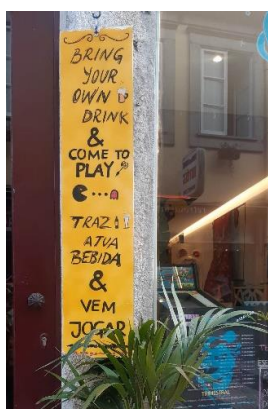 BRING
YOUR
OWN
DRINK
&
COME TO
PLAY
TRAZ
A TUA
BEBIDA
&
VEM
JOGAR